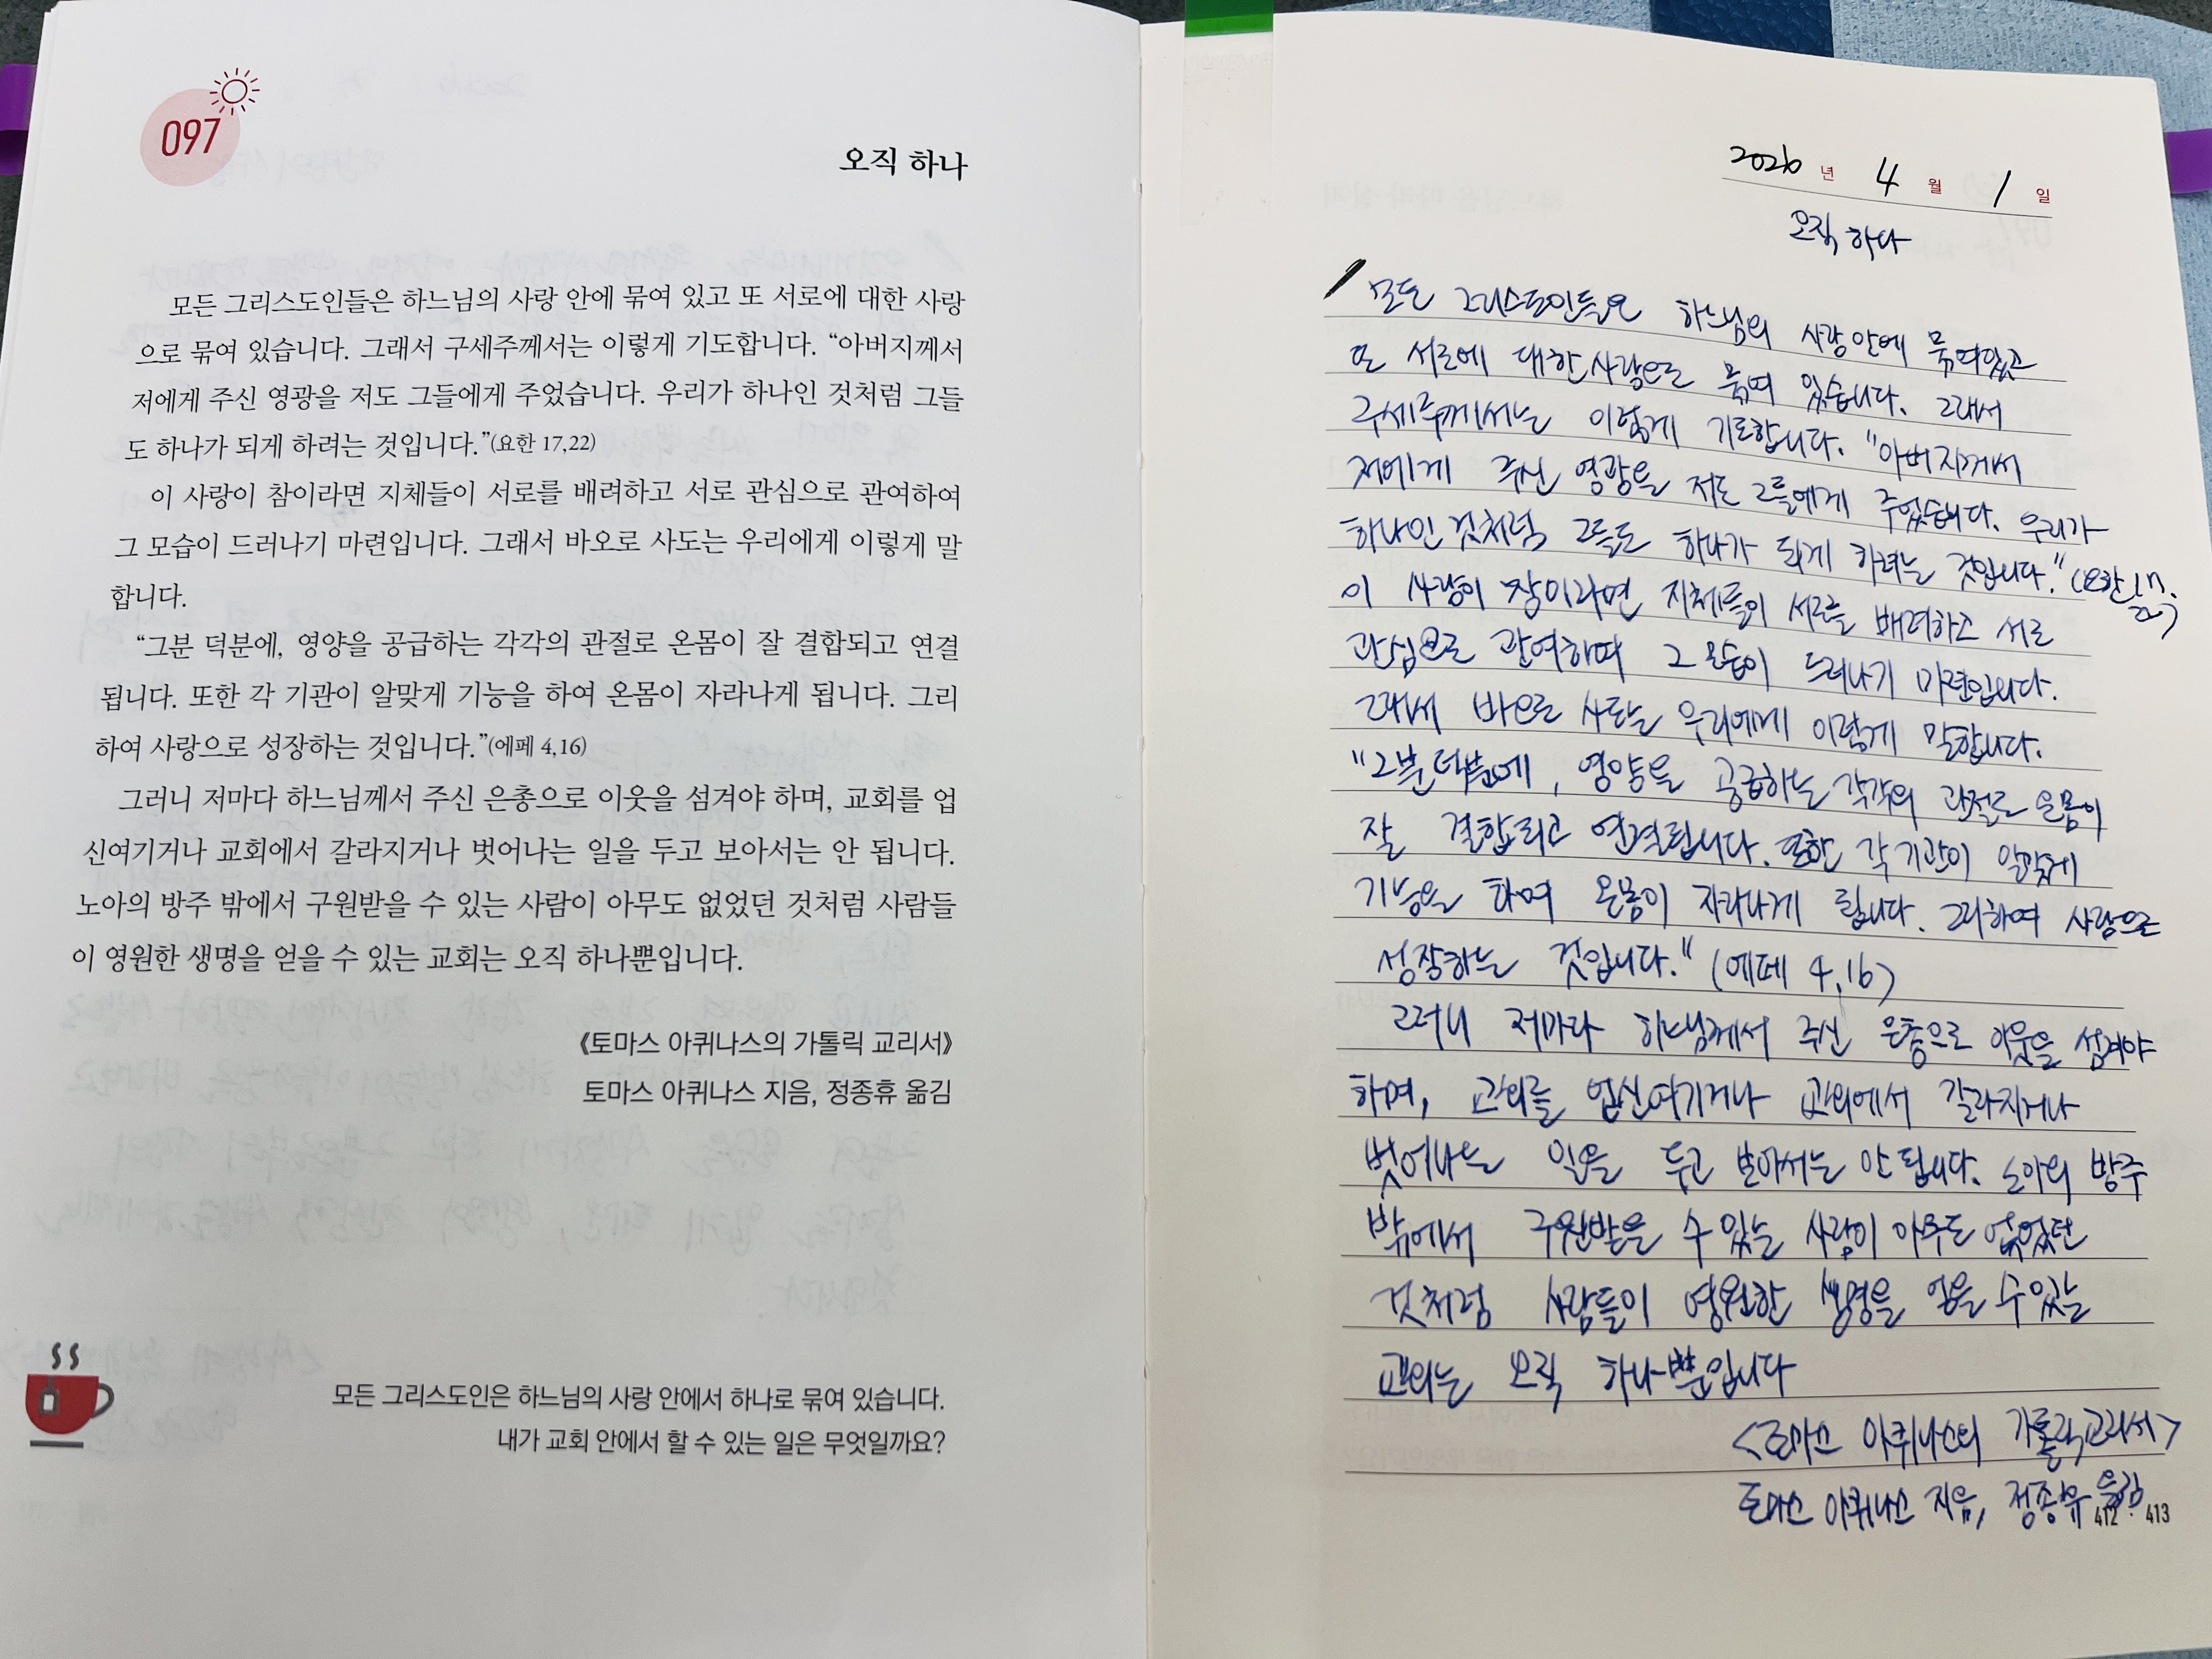 097
오직 하나
모든 그리스도인들은 하느님의 사랑 안에 묶여 있고 또 서로에 대한 사랑
으로 묶여 있습니다. 그래서 구세주께서는 이렇게 기도합니다. “아버지께서
저에게 주신 영광을 저도 그들에게 주었습니다. 우리가 하나인 것처럼 그들
도 하나가 되게 하려는 것입니다.”(요한 17,22)
이 사랑이 참이라면 지체들이 서로를 배려하고 서로 관심으로 관여하여
그 모습이 드러나기 마련입니다. 그래서 바오로 사도는 우리에게 이렇게 말
합니다.
“그분 덕분에, 영양을 공급하는 각각의 관절로 온몸이 잘 결합되고 연결
됩니다. 또한 각 기관이 알맞게 기능을 하여 온몸이 자라나게 됩니다. 그리
하여 사랑으로 성장하는 것입니다.”(에페 4,16)
그러니 저마다 하느님께서 주신 은총으로 이웃을 섬겨야 하며, 교회를 업
신여기거나 교회에서 갈라지거나 벗어나는 일을 두고 보아서는 안 됩니다.
노아의 방주 밖에서 구원받을 수 있는 사람이 아무도 없었던 것처럼 사람들
이 영원한 생명을 얻을 수 있는 교회는 오직 하나뿐입니다.
《토마스 아퀴나스의 가톨릭 교리서》
토마스 아퀴나스 지음, 정종휴 옮김
모든 그리스도인은 하느님의 사랑 안에서 하나로 묶여 있습니다.
내가 교회 안에서 할 수 있는 일은 무엇일까요?
2026 년 4 월 1 일
오직 하나
모든 그리스도인들은 하느님의 사랑안에 묶여있고
또 서로에 대한사랑으로 묶여 있습니다. 그래서
구세주께서는 이렇게 기도합니다. "아버지께서
저에게 주신 영광을 저도 그들에게 주었습니다. 우리가
하나인 것처럼 그들도 하나가 되게 하려는 것입니다." (요한 17.
22)
이 사랑이 참이라면 지체들이 서로를 배려하고 서로
관심으로 관여하며 그 모습이 드러나기 마련입니다.
그래서 바오로 사도는 우리에게 이렇게 말합니다.
"그분덕분에, 영양을 공급하는 각각의 관절로 온몸이
잘 결합되고 연결됩니다. 또한 각 기관이 알맞게
기능을 하여 온몸이 자라나게 됩니다. 그리하여 사랑으로
성장하는 것입니다." (에페 4,16)
그러니 저마다 하느님께서 주신 은총으로 이웃을 섬겨야
하며, 교회를 업신여기거나 교회에서 갈라지거나
벗어나는 일을 두고 보아서는 안됩니다. 노아의 방주
밖에서 구원받을 수 있는 사람이 아무도 없었던
것처럼 사람들이 영원한 생명을 얻을 수있는
교회는 오직 하나뿐입니다
<토마스 아퀴나스의 가톨릭교리서>
토마스 아퀴나스 지음, 정종휴 옮김
412 · 413